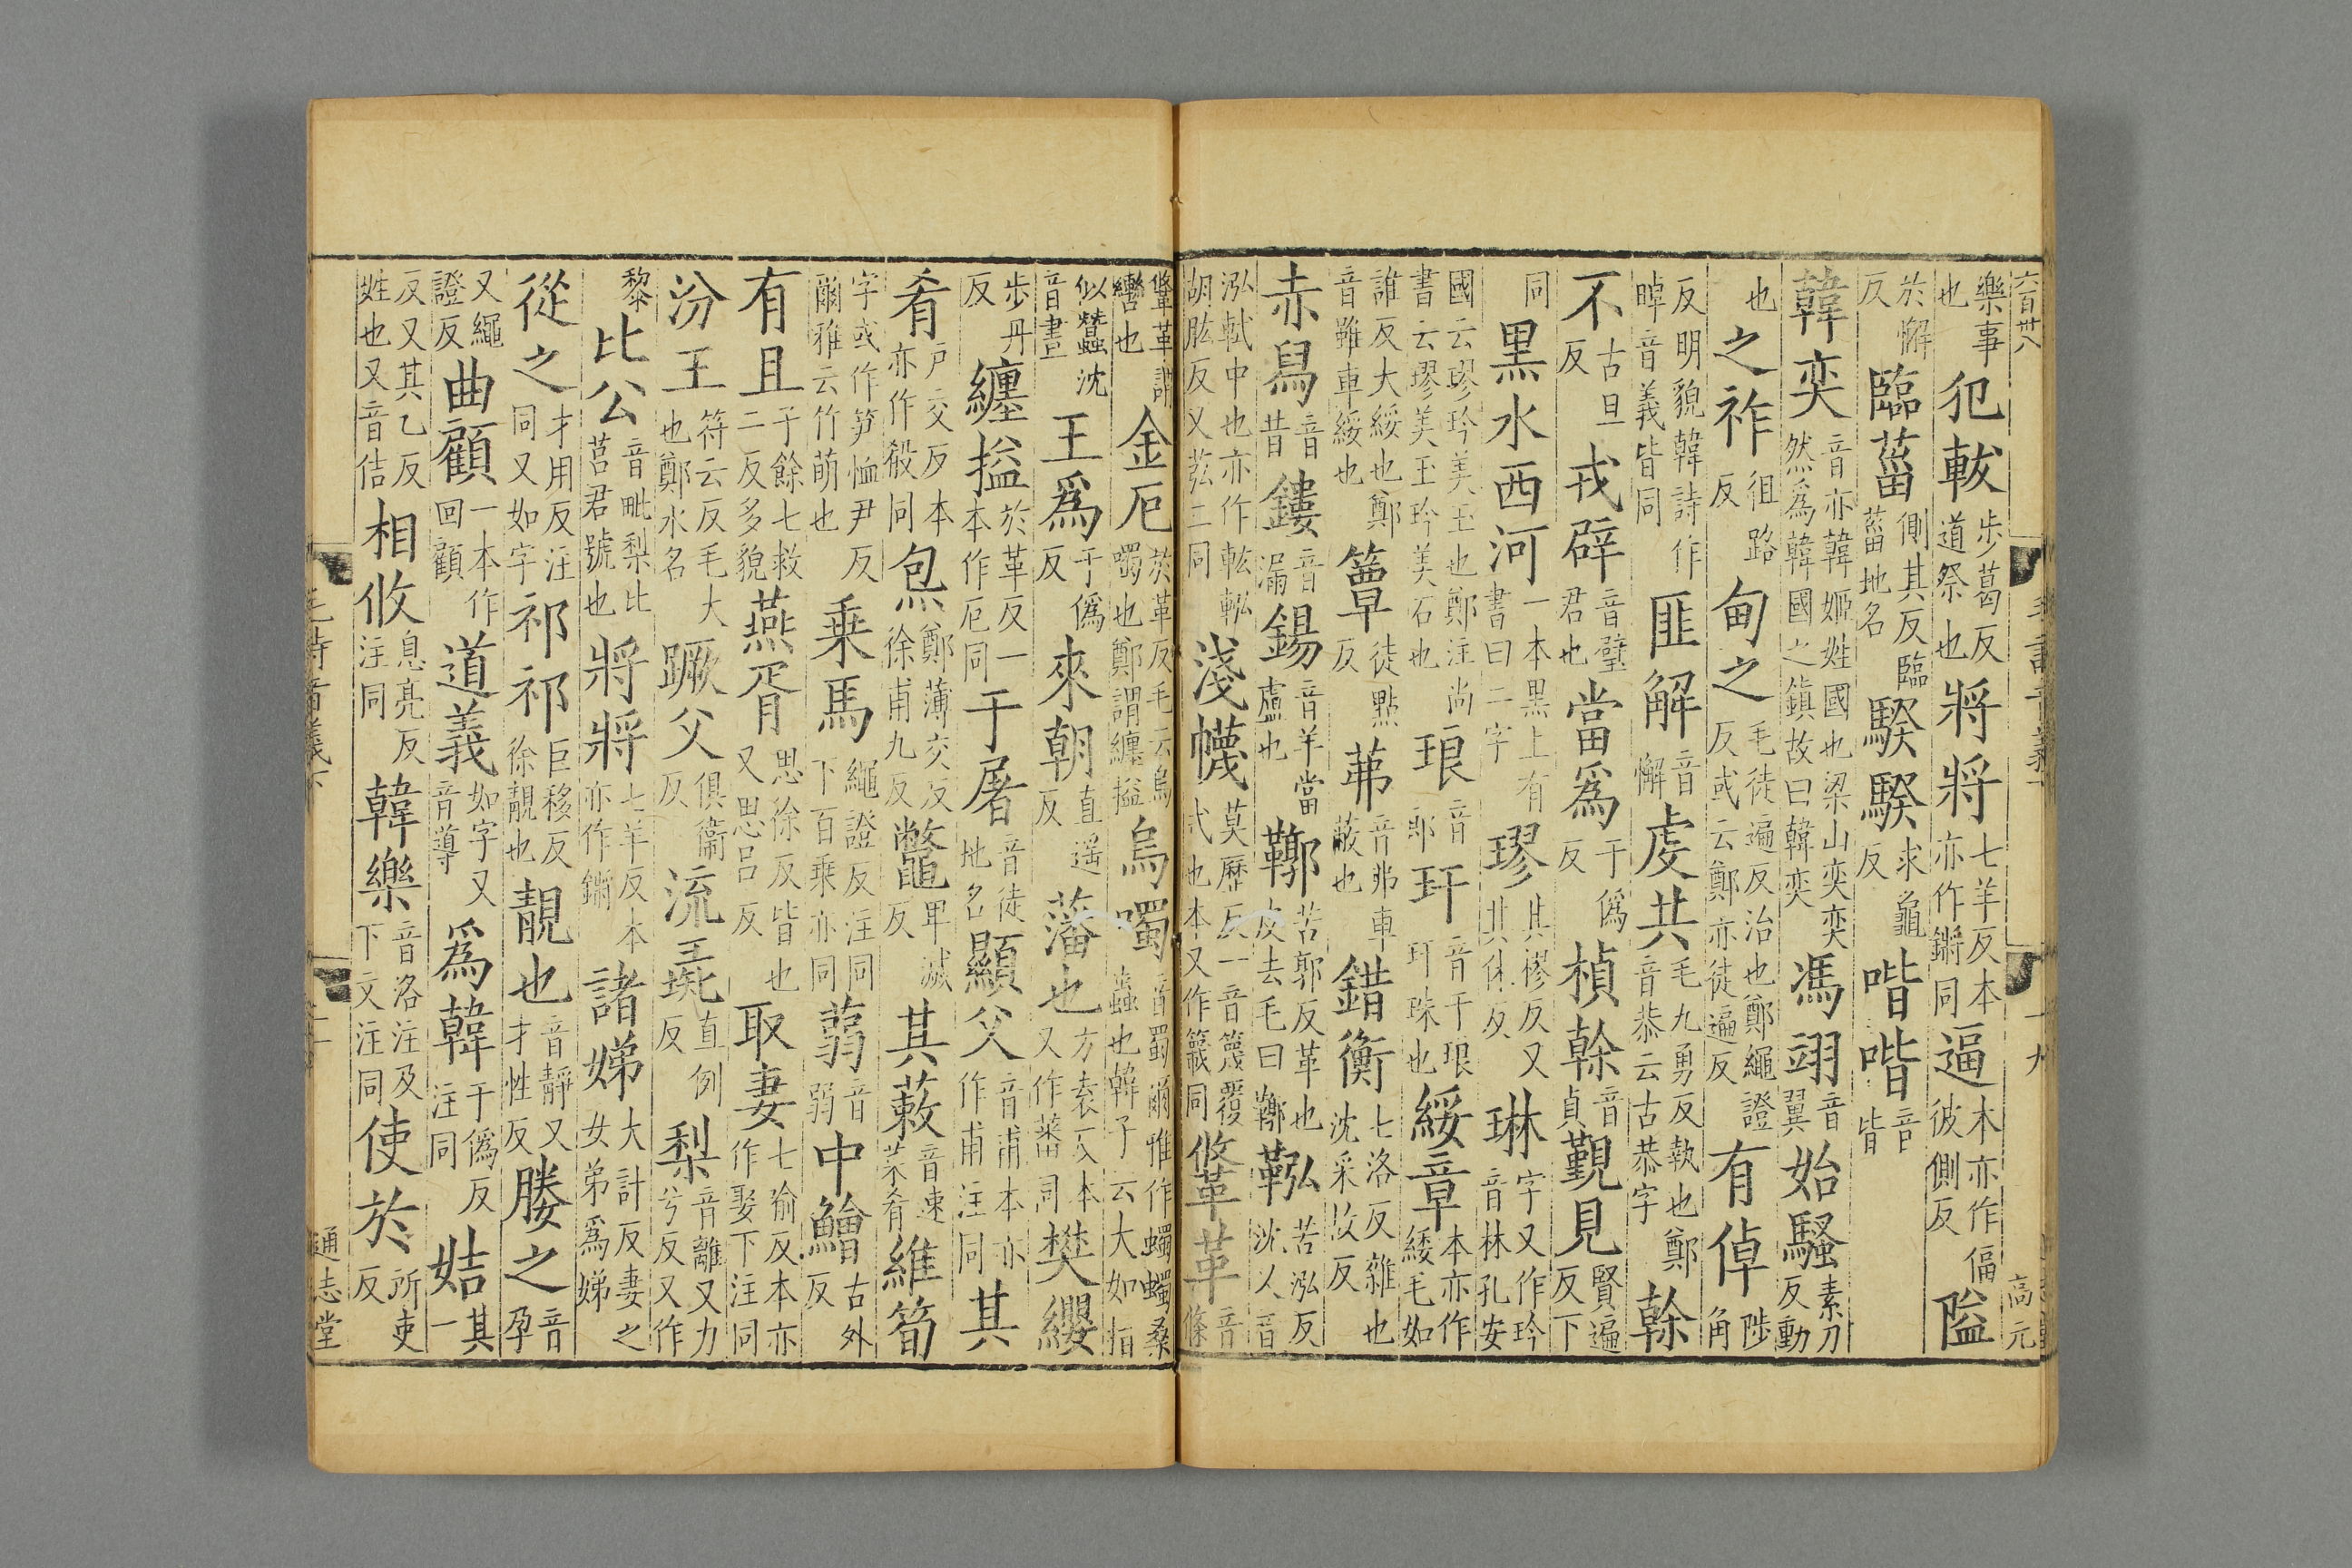 六百卅八 毛詩音義下 十九 高元
樂事也犯軷步葛反道祭也將將七羊反本亦作鏘同逼本亦作偪彼側反隘
於懈反臨菑側其反臨菑地名騤騤求龜反喈喈音皆
韓奕音亦韓姬姓國也梁山奕奕然爲韓國之鎮故曰韓奕馮翊音翼始騷素刀反動
也之祚徂路反甸之毛徒遍反治也鄭繩證反或云鄭亦徒遍反有倬陟角
反明貌韓詩作晫音義皆同匪解音懈虔共毛九勇反執也鄭音恭云古恭字榦
不古旦反戎辟音璧君也當爲于僞反楨榦音貞覲見賢遍反下
同黑水西河一本黑上有書曰二字璆其樛反又其休反琳字又作玪音林孔安
國云璆玪美玉也鄭注尚書云璆美玉玪美石也琅音郎玕音干琅玕珠也綏章本亦作緌毛如
誰反大綏也鄭音雖車綏也簟徒點反茀音弗車蔽也錯衡七洛反雜也沈采故反
赤舄音昔鏤音漏鍚音羊當盧也鞹苦郭反革也皮去毛曰鞹鞃苦泓反沈又音
泓軾中也亦作胡肱反又二同淺幭莫歷反一音篾覆式也本又作簚同鞗革音條
鞗革謂轡也金厄於革反毛云烏噣也鄭謂纏搤烏噣音蜀爾雅作蠋蠋桑蟲也韓子云大如指
似蠶沈音晝王爲于僞反來朝直遥反藩也方袁反本又作蕃同樊纓
步丹反纏搤於革反一本作厄同于屠音徒地名顯父音甫本亦作甫注同其
肴戶交反本亦作殽同炰鄭薄交反徐甫九反鼈卑滅反其蔌音速菜肴維筍
字或作笋恤尹反爾雅云竹萌也乗馬繩證反注同下百乘亦同蒻音弱中鱠古外反
有且子餘七救二反多貌燕胥思徐反皆也又思呂反取妻七喻反本亦作娶下注同
汾王符云反毛大也鄭水名蹶父俱衞反流彘直例反梨音離又力兮反又作
黎比公音毗梨比莒君號也將將七羊反本亦作鏘諸娣大計反妻之女弟爲娣
從之才用反注同又如字祁祁巨移反徐靚也靚也音靜又才性反媵之音孕
又繩證反曲顧一本作回顧道義如字又音導爲韓于僞反注同姞其一
反又其乙反姓也又音佶相攸息亮反注同韓樂音洛注及下文注同使於所吏反
毛詩音義下 二十 通志堂